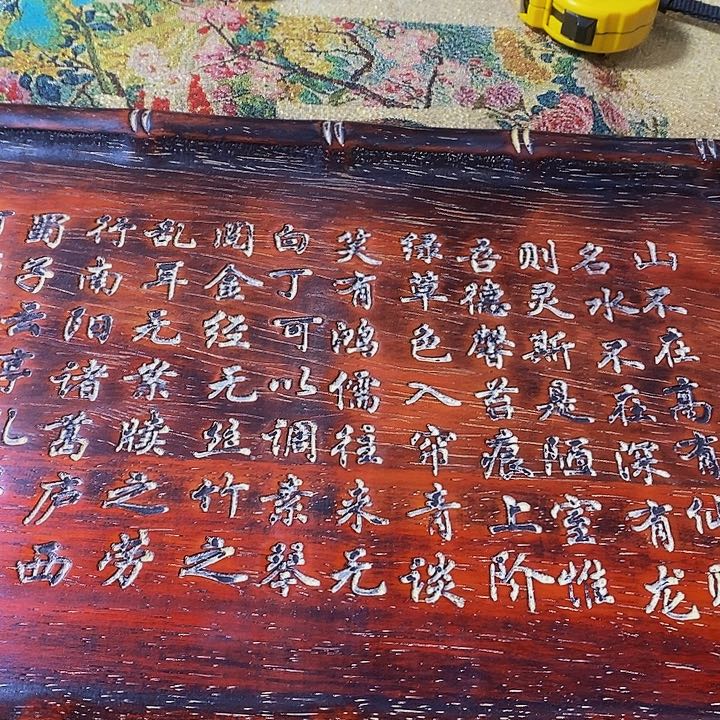 山不在高有仙则
名水不在深有龙
则灵斯是陋室惟
吾德馨苔痕上阶
绿草色入帘青谈
笑有鸿儒往来无
白丁可以调素琴
阅金经无丝竹之
乱耳无案牍之劳
行南阳诸葛庐西
蜀子云亭孔